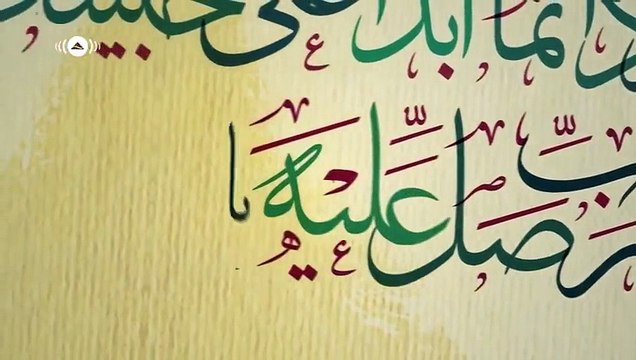 دائما أبدا على حبيبك
صل عليه يا